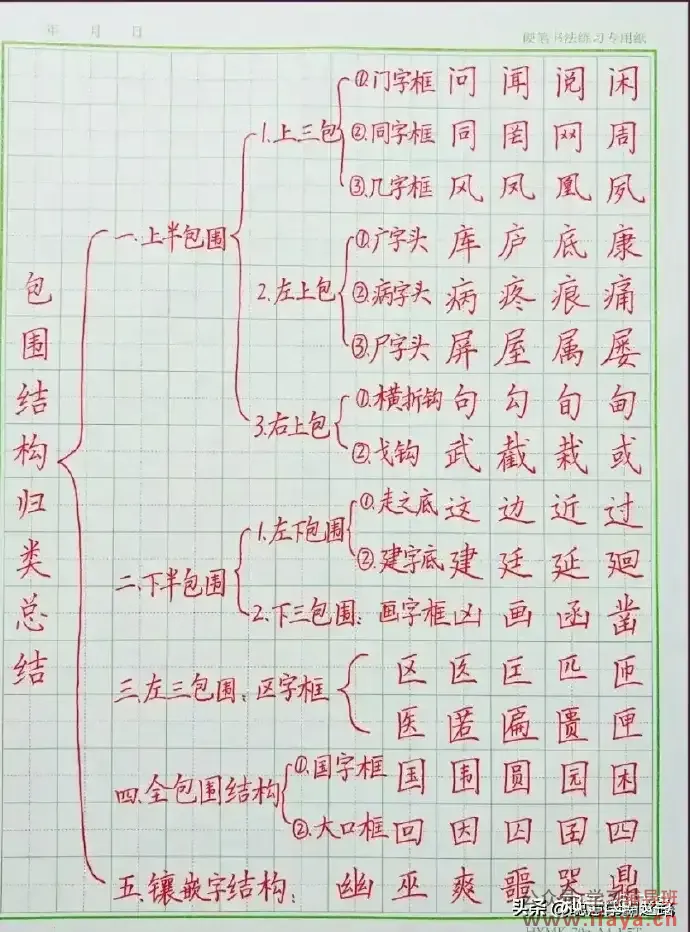 年 月 日
硬笔书法练习专用纸
包围结构归类总结
一.上半包围
1.上三包
①.门字框 问 闻 阅 闲
②.同字框 同 罔 网 周
③.几字框 风 凤 凰 夙
2.左上包
①.广字头 库 庐 底 康
②.病字头 病 疼 痕 痛
③.尸字头 屏 屋 属 屡
3.右上包
①.横折钩 句 勾 旬 甸
②.戈钩 武 截 栽 或
二.下半包围
1.左下包围
①.走之底 这 边 近 过
②.建字底 建 廷 延 廻
2.下三包围：画字框 凶 画 函 凿
三.左三包围：区字框
区 医 匡 匹 匝
医 匿 匾 匮 匣
四.全包围结构
①.国字框 国 围 圆 园 困
②.大口框 回 因 囚 四
五.镶嵌字结构： 幽 巫 爽 噩 哭 鼎
头条
www.haya.cn